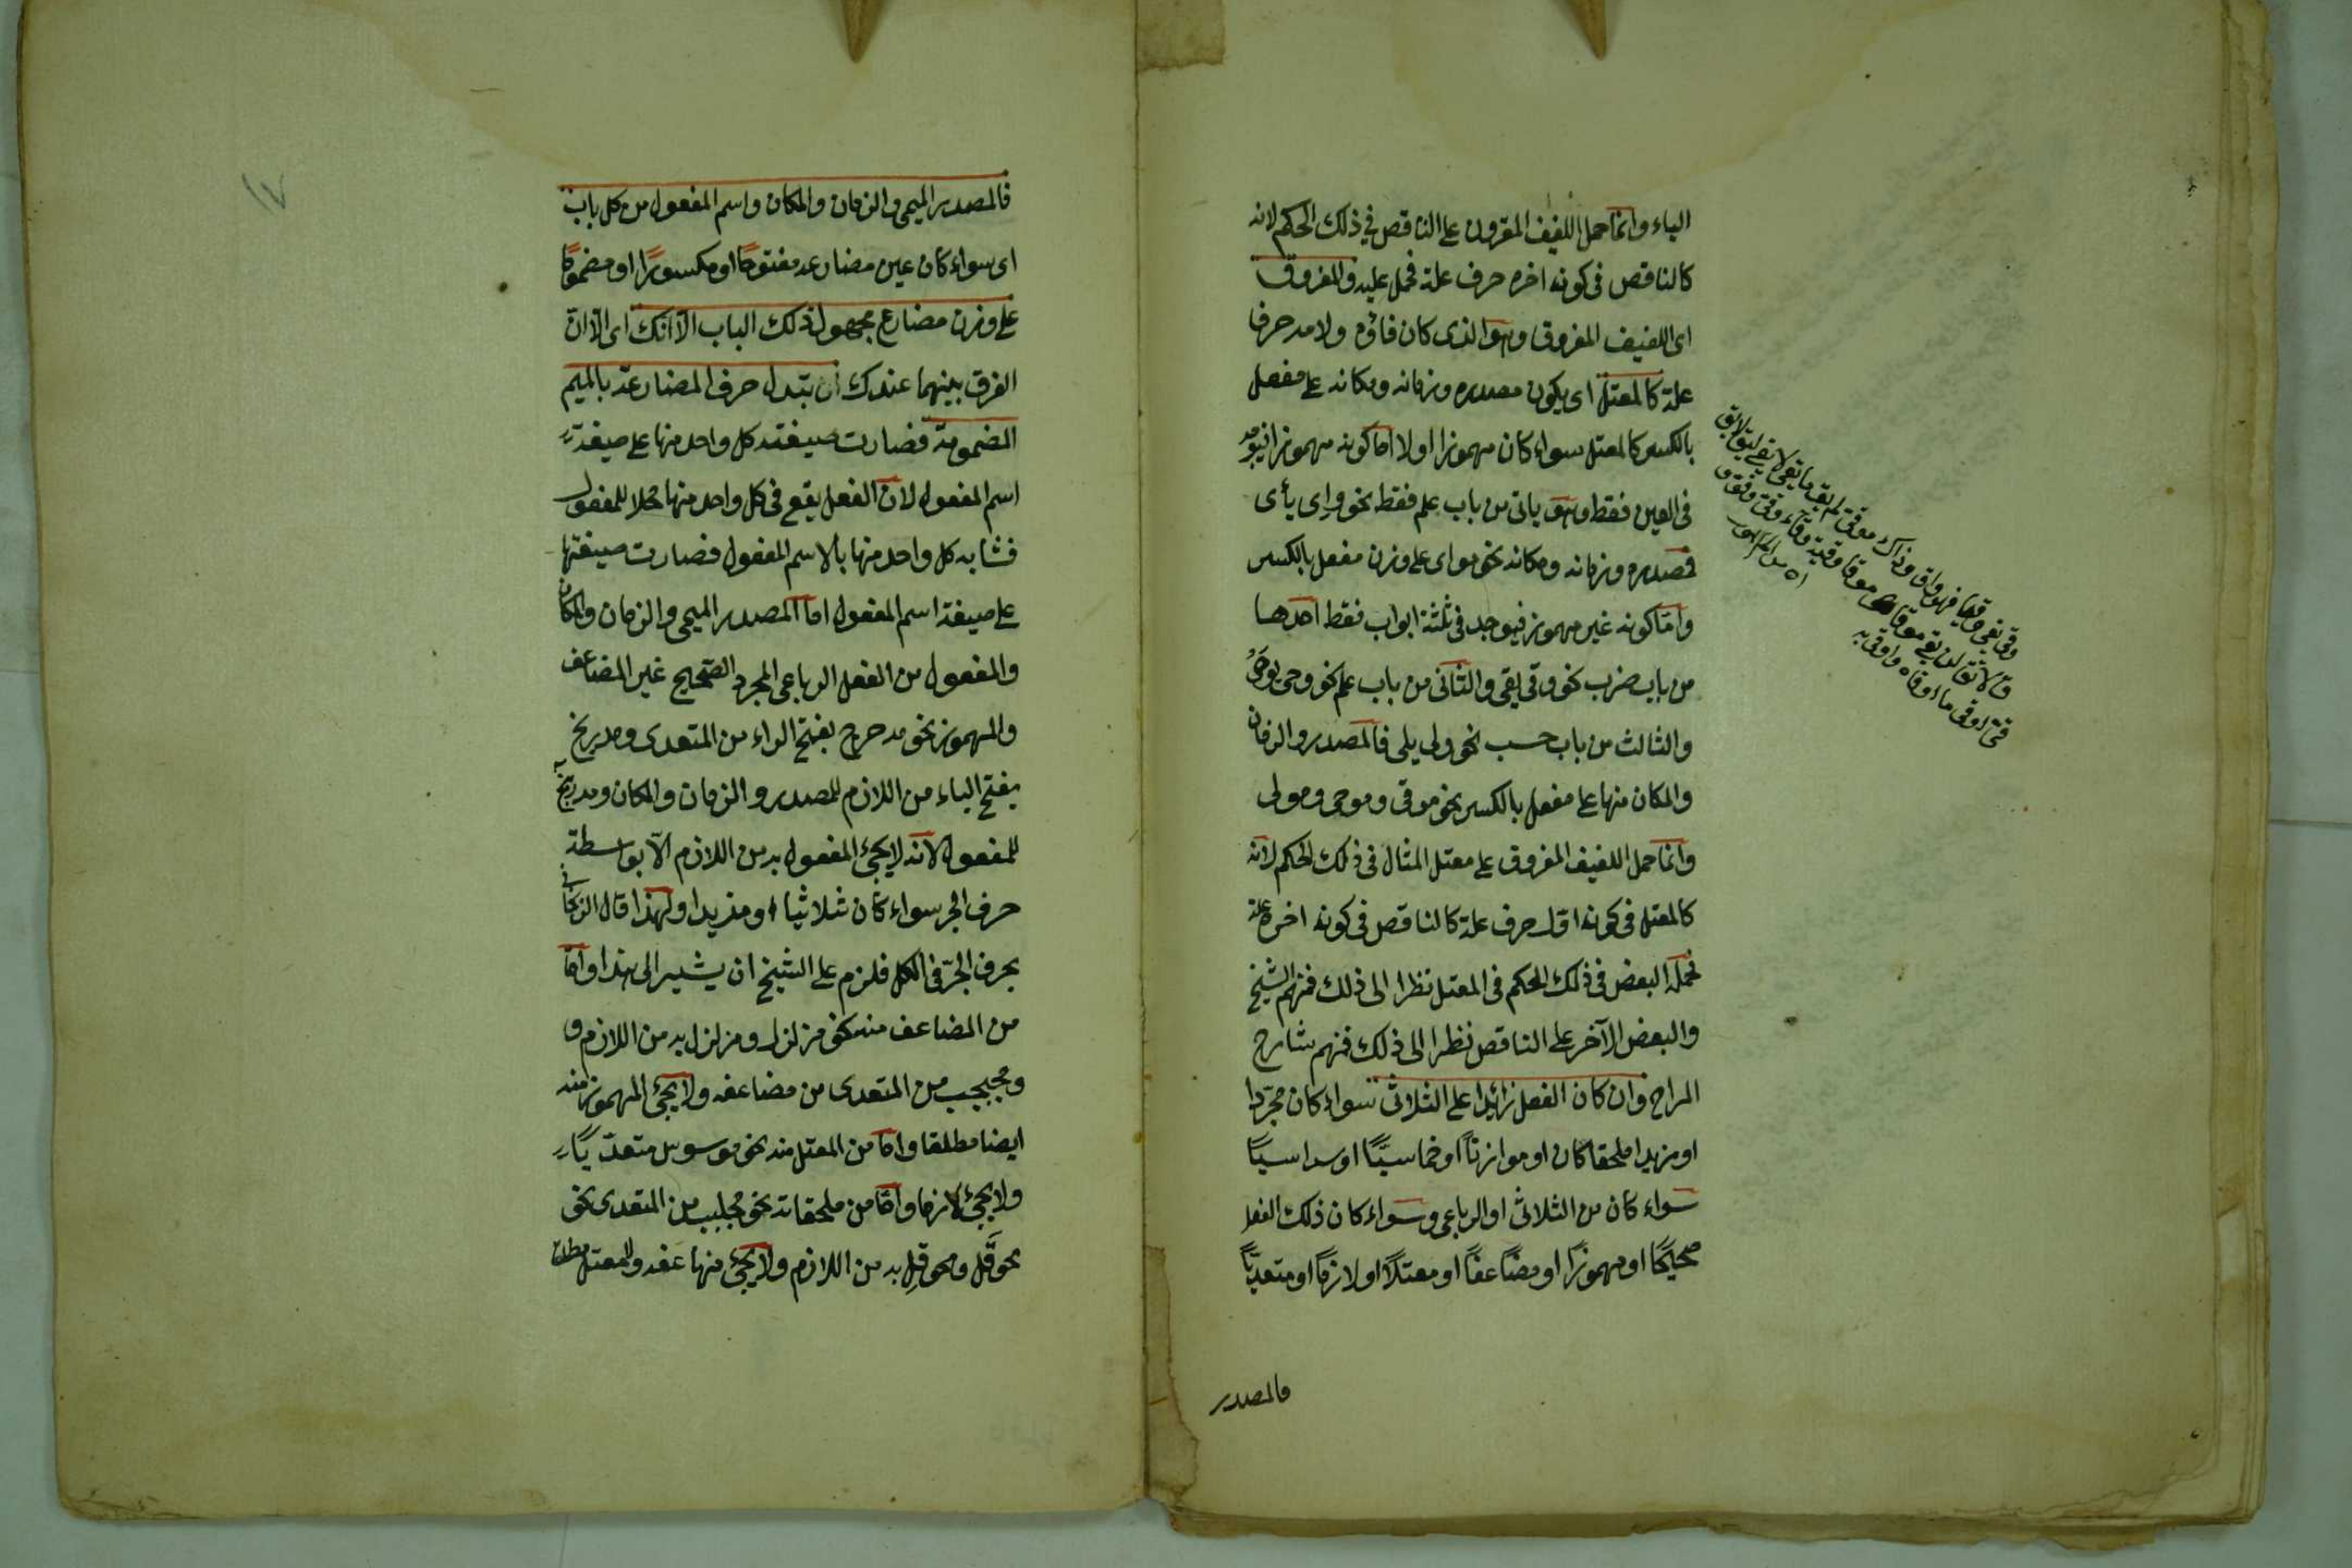 الياء وانما حمل اللفيف المقرون على الناقص في ذلك الحكم لانه
كالناقص في كونه اخره حرف علة فحمل عليه والمفروق
اى اللفيف المفروق وهو الذى كان فاؤه ولامه حرفا
علة كالمعتل اى يكون مصدره وزمانه ومكانه على مفعل
بالكسر كالمعتل سواء كان مهموزا اولا اما كونه مهموزا فيوجد
فى العين فقط وهو ياتى من باب علم فقط نحو واى يأى
فمصدره وزمانه ومكانه نحو مواى على وزن مفعل بالكسر
واما كونه غير مهموز فيوجد فى ثلثة ابواب فقط احدها
من باب ضرب نحو وقى يقى والثانى من باب علم نحو وجى يوجى
والثالث من باب حسب نحو ولى يلى فالمصدر والزمان
والمكان منها على مفعل بالكسر نحو موقى وموجى ومولى
وانما حمل اللفيف المفروق على معتل المثال فى ذلك الحكم لانه
كالمعتل فى كونه اول حرف علة كالناقص فى كونه اخره علة
فحمله البعض فى ذلك الحكم فى المعتل نظرا الى ذلك فمنهم الشيخ
والبعض الآخر على الناقص نظرا الى ذلك فمنهم شارح
المراح وان كان الفعل زائدا على الثلاثى سواء كان مجردا
او مزيدا ملحقا كان او موازنا او خماسيا او سداسيا
سواء كان من الثلاثى او الرباعى وسواء كان ذلك الفعل
صحيحا او مهموزا او مضاعفا او معتلا او لازما او متعديا
فالمصدر
فالمصدر الميمى والزمان والمكان واسم المفعول من كل باب
اى سواء كان عين مضارعه مفتوحا او مكسورا او مضموما
على وزن مضارع مجهول ذلك الباب الا انك اى الا ان
الفرق بينهما عندك ان تبدل حرف المضارعة بالميم
المضمومة فصارت صيغته كل واحد منها على صيغة
اسم المفعول لان الفعل يقع فى كل واحد منها محلا للمفعول
فشابه كل واحد منها بالاسم المفعول فصارت صيغتها
على صيغة اسم المفعول اما المصدر الميمى والزمان والمكان
والمفعول من الفعل الرباعى المجرد الصحيح غير المضاعف
والمهموز نحو مدحرج بفتح الراء من المتعدى ومدربخ
بفتح الباء من اللازم للمصدر والزمان والمكان ومدربخ به
للمفعول لانه لا يجئ المفعول به من اللازم الا بواسطة
حرف الجر سواء كان ثلاثيا او مزيدا ولهذا قال الزنجانى
بحرف الجر فى الكل فلزم على الشيخ ان يشير الى هذا واما
من المضاعف منه نحو مزلزل ومزلزل به من اللازم و
ومجبجب من المتعدى من مضاعفه ولا يجئ المهموز منه
ايضا مطلقا واما من المعتل منه نحو موسوس متعديا
ولا يجئ لازما واما من ملحقاته نحو مجلبب من المتعدى نحو
محوقل ومحوقل به من اللازم ولا يجئ منها عفه والمعتل مطلقا
١٧